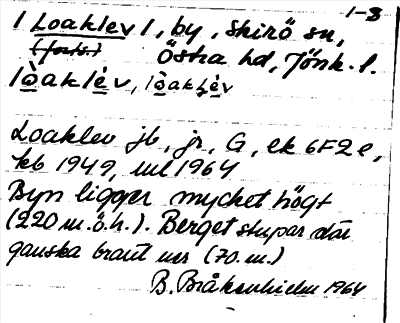 1-8
/ Loaklev /, by, Skirö sn,
(forts.) Östra hd, Jönk. l.
lòaklèv, lòaklèv
Loaklev jb, jr, G, ek 6F2e,
kb 1949, ul 1964
Byn ligger mycket högt
(220 m.ö.h.). Berget stupar där
ganska brant ner (70.m.)
B. Bråkenhielm 1964